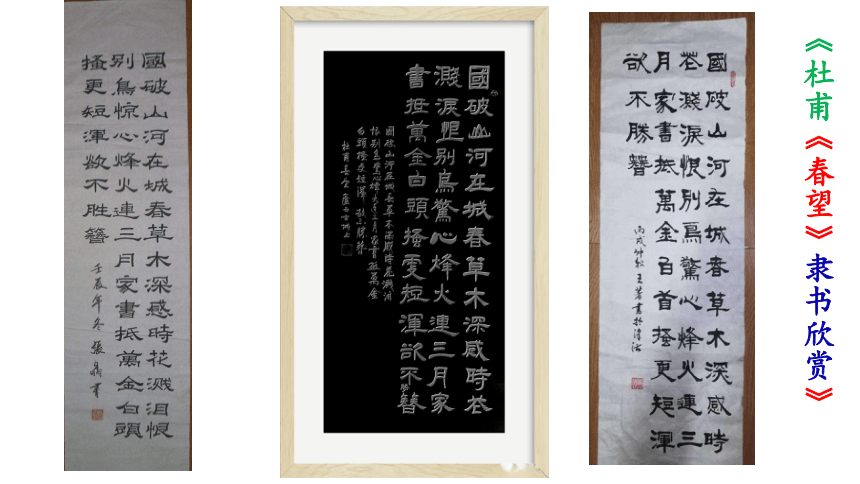 《杜甫《春望》隶书欣赏》
國破山河在城春草木深感時花溅泪恨
别鳥惊心烽火連三月家書抵萬金白頭
搔更短渾欲不胜簪
壬辰年冬
國破山河在城春草木深感時花
濺淚恨别鳥驚心烽火連三月家
書抵萬金白頭搔更短渾欲不勝簪
國破山河在城春草木深感時花溅泪
恨别鸟驚心烽火連三月家書抵萬金
白頭搔更短渾欲不勝簪
國破山河在城春草木深感時
花濺淚恨别鳥驚心烽火連三
月家書抵萬金白首搔更短渾
欲不勝簪
丙戌仲秋